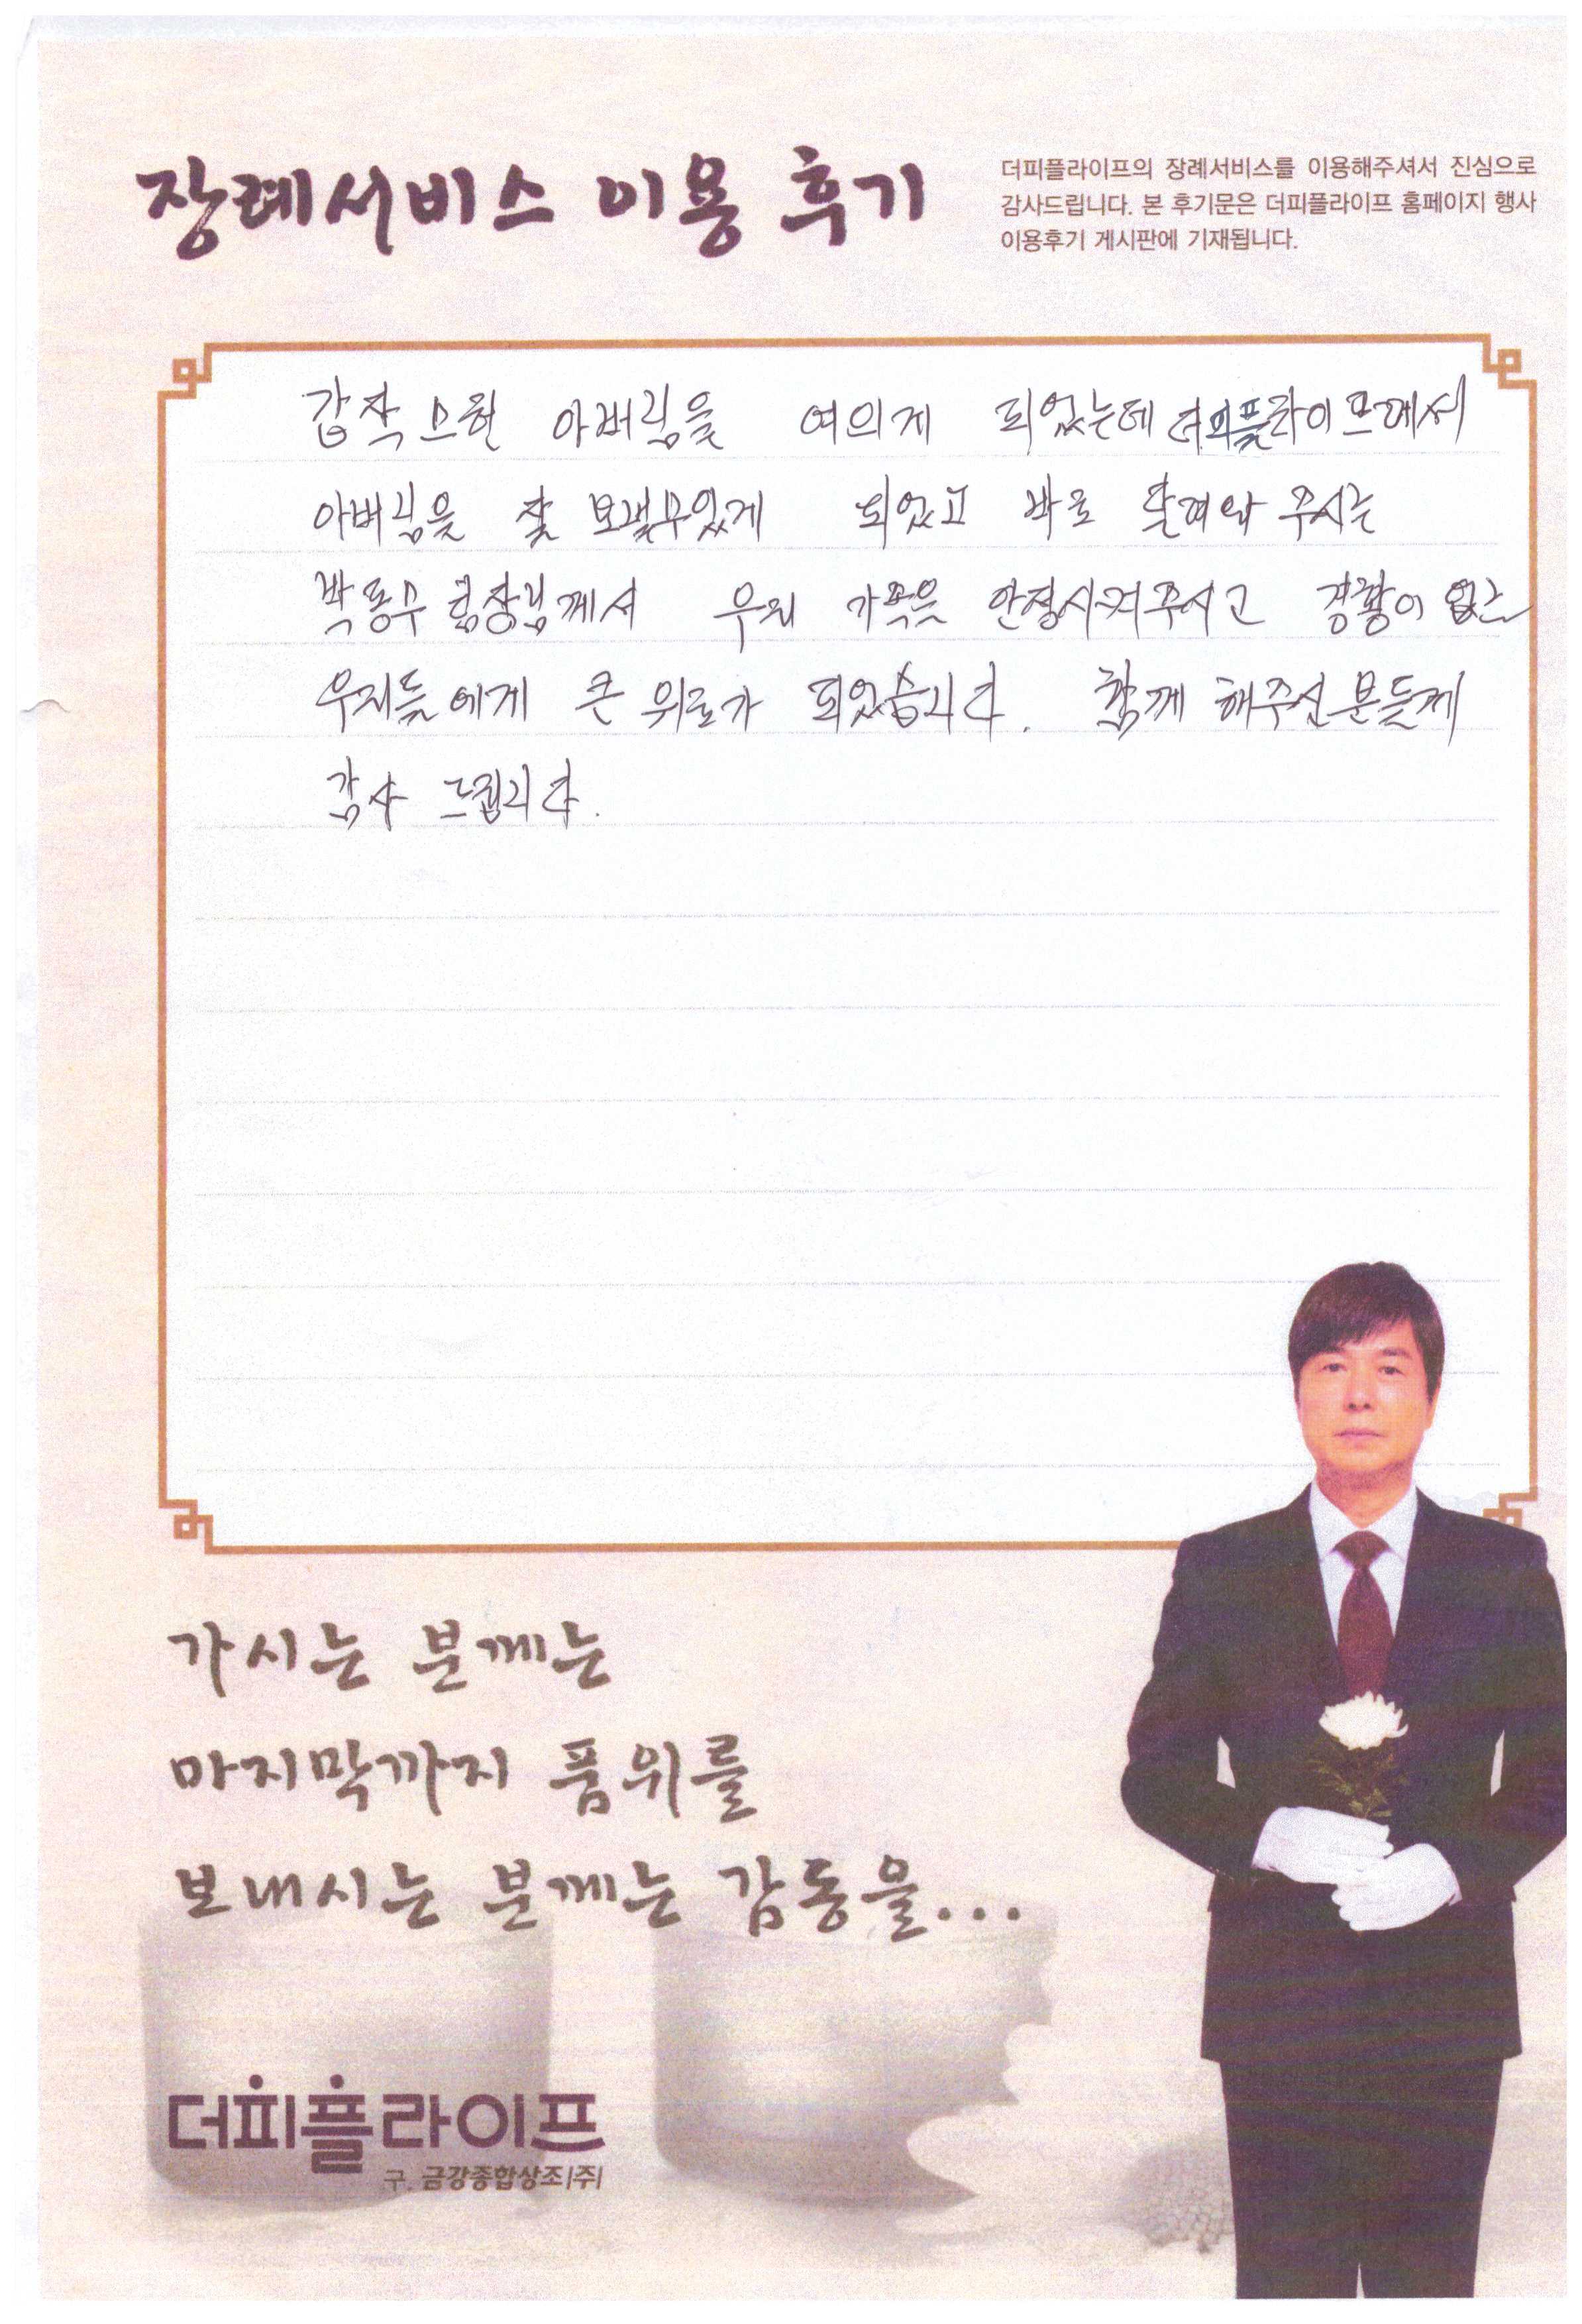 장례서비스 이용 후기
더피플라이프의 장례서비스를 이용해주셔서 진심으로
감사드립니다. 본 후기문은 더피플라이프 홈페이지 행사
이용후기 게시판에 기재됩니다.
갑작스런 아버님을 여의게 되었는데 더피플라이프에서
아버님을 잘 보낼수있게 되었고 바로 달려와 주시는
박동수 팀장님께서 우리 가족을 안정시켜주시고 경황이 없는
우리들에게 큰 위로가 되었습니다. 함께 해주신분들께
감사 드립니다.
가시는 분께는
마지막까지 품위를
보내시는 분께는 감동을...
더피플라이프
구. 금강종합상조|주|